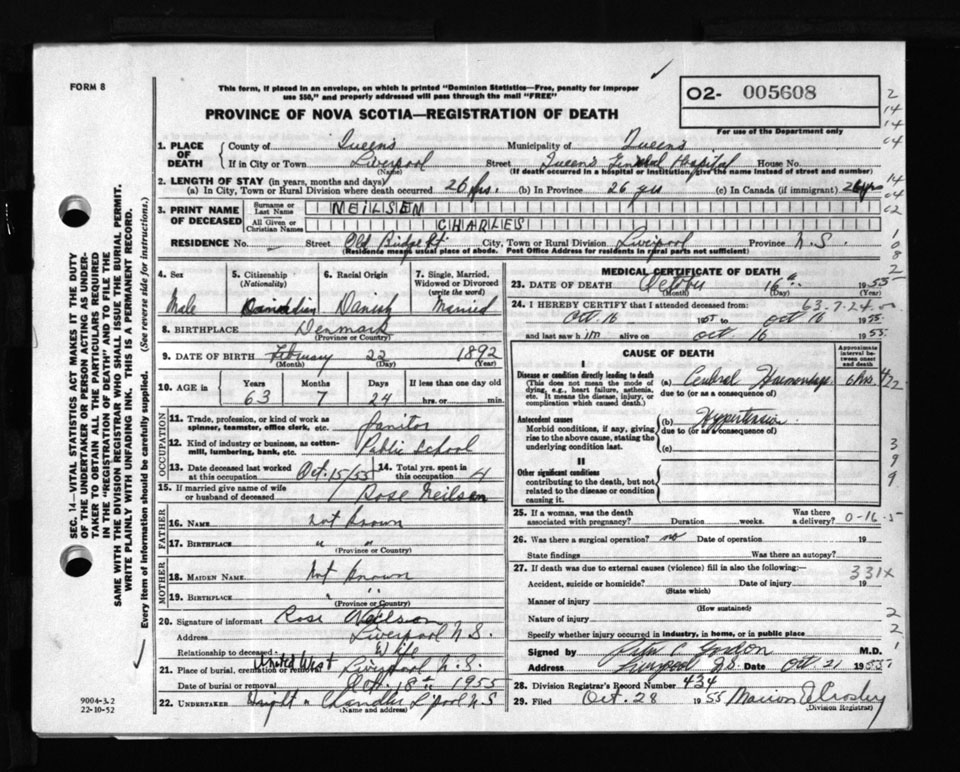 FORM 8
This form, if placed in an envelope, on which is printed "Dominion Statistics—Free, penalty for improper
use $50," and properly addressed will pass through the mail "FREE"
PROVINCE OF NOVA SCOTIA—REGISTRATION OF DEATH
O2- 005608
For use of the Department only
1. PLACE OF DEATH
County of Queens Municipality of Queens
If in City or Town Liverpool Street Queens General Hospital House No.
(Name) (If death occurred in a hospital or institution, give the name instead of street and number)
2. LENGTH OF STAY (in years, months and days)
(a) In City, Town or Rural Division where death occurred 26 yrs. (b) In Province 26 yrs (c) In Canada (if immigrant) 26 yrs
3. PRINT NAME OF DECEASED
Surname or Last Name NEILSEN
All Given or Christian Names CHARLES
RESIDENCE No. Street Old Bridge St. City, Town or Rural Division Liverpool Province N.S.
(Residence means usual place of abode. Post Office Address for residents in rural parts not sufficient)
4. Sex Male
5. Citizenship (Nationality) Canadian
6. Racial Origin Danish
7. Single, Married, Widowed or Divorced (write the word) Married
8. BIRTHPLACE Denmark
(Province or Country)
9. DATE OF BIRTH February 22 1892
(Month) (Day) (Year)
10. AGE in Years Months Days If less than one day old
63 7 24 hrs. or min.
OCCUPATION
11. Trade, profession, or kind of work as spinner, teamster, office clerk, etc. Janitor
12. Kind of industry or business, as cotten-mill, lumbering, bank, etc. Public School
13. Date deceased last worked at this occupation Oct. 15/55 14. Total yrs. spent in this occupation 4
15. If married give name of wife or husband of deceased Rose Neilsen
FATHER
16. NAME not known
17. BIRTHPLACE " "
(Province or Country)
MOTHER
18. MAIDEN NAME Not known
19. BIRTHPLACE " "
(Province or Country)
20. Signature of informant Rose Neilson
Address Liverpool N.S.
Relationship to deceased Wife
21. Place of burial, cremation or removal United West Liverpool N.S.
Date of burial or removal Oct. 18th 1955
22. UNDERTAKER Wright & Chandler L'pool NS
(Name and address)
MEDICAL CERTIFICATE OF DEATH
23. DATE OF DEATH October 16th 1955
(Month) (Day) (Year)
63-7-24
24. I HEREBY CERTIFY that I attended deceased from:
Oct. 16 1955 to Oct 16 1955
and last saw him alive on Oct 16 1955
CAUSE OF DEATH
Approximate interval between onset and death
I
Disease or condition directly leading to death (a) Cerebral Haemorrhage 6 hrs.
(This does not mean the mode of dying, e.g., heart failure, asthenia, etc. It means the disease, injury, or complication which caused death.)
due to (or as a consequence of)
Antecedent causes (b) Hypertension
Morbid conditions, if any, giving rise to the above cause, stating the underlying condition last.
due to (or as a consequence of)
(c)
II
Other significant conditions
contributing to the death, but not related to the disease or condition causing it.
25. If a woman, was the death associated with pregnancy? Duration weeks. Was there a delivery? 0-16-5
26. Was there a surgical operation? no Date of operation 19
State findings Was there an autopsy?
27. If death was due to external causes (violence) fill in also the following:—
331X
Accident, suicide or homicide? Date of injury 19
(State which)
Manner of injury
(How sustained)
Nature of injury
Specify whether injury occurred in industry, in home, or in public place
Signed by M.D.
Address Liverpool N.S. Date Oct. 21 1955
28. Division Registrar's Record Number 434
29. Filed Oct. 28 1955 Marion Crosby
(Division Registrar)
SEC. 14—VITAL STATISTICS ACT MAKES IT THE DUTY
OF THE UNDERTAKER OR PERSON ACTING AS UNDER-
TAKER TO OBTAIN ALL THE PARTICULARS REQUIRED
IN THE "REGISTRATION OF DEATH" AND TO FILE THE
SAME WITH THE DIVISION REGISTRAR WHO SHALL ISSUE THE BURIAL PERMIT.
WRITE PLAINLY WITH UNFADING INK. THIS IS A PERMANENT RECORD.
Every item of information should be carefully supplied. (See reverse side for instructions.)
9004-3.2
22-10-52